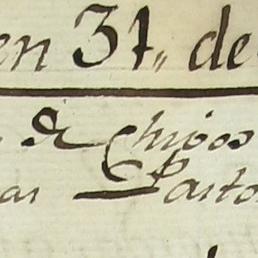 en 31,, de
de Chivos
as Pasto